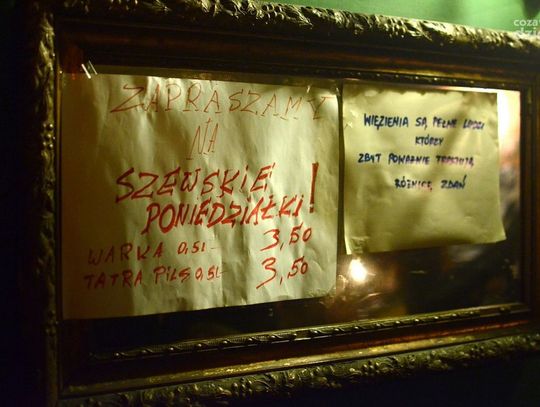 ZAPRASZAMY
NA
SZEWSKIE
PONIEDZIAŁKI!
WARKA 0,5L- 3,50
TATRA PILS 0,5L- 3,50
WIĘZIENIA SĄ PEŁNE LUDZI
KTÓRZY
ZBYT POWAŻNIE TRAKTUJĄ
RÓŻNICĘ ZDAŃ